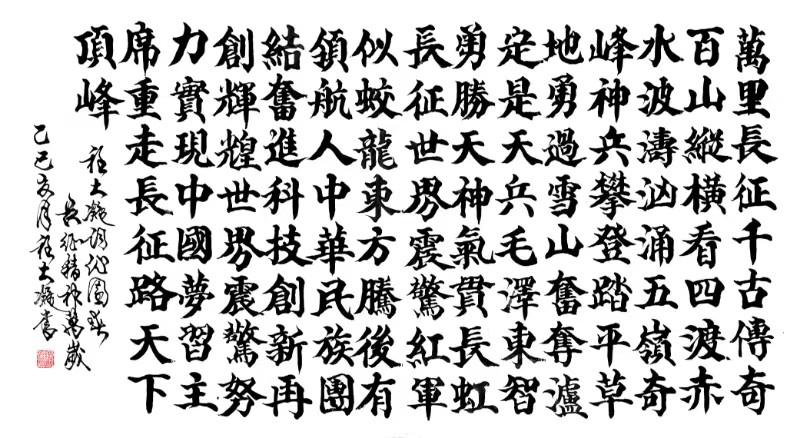 萬里長征千古傳奇
百山縱橫看四渡赤
水波濤汹涌五嶺奇
峰神兵攀登踏平草
地勇過雪山奮奪瀘
定是天兵毛澤東智
勇勝天神氣貫長虹
長征世界震驚紅軍
似蛟龍東方騰後有
領航人中華民族團
結奮進科技創新再
創輝煌世界震驚努
力實現中國夢習主
席重走長征路天下
頂峰
大凝詞沁園春
長征精神萬歲
乙巳亥月大凝書